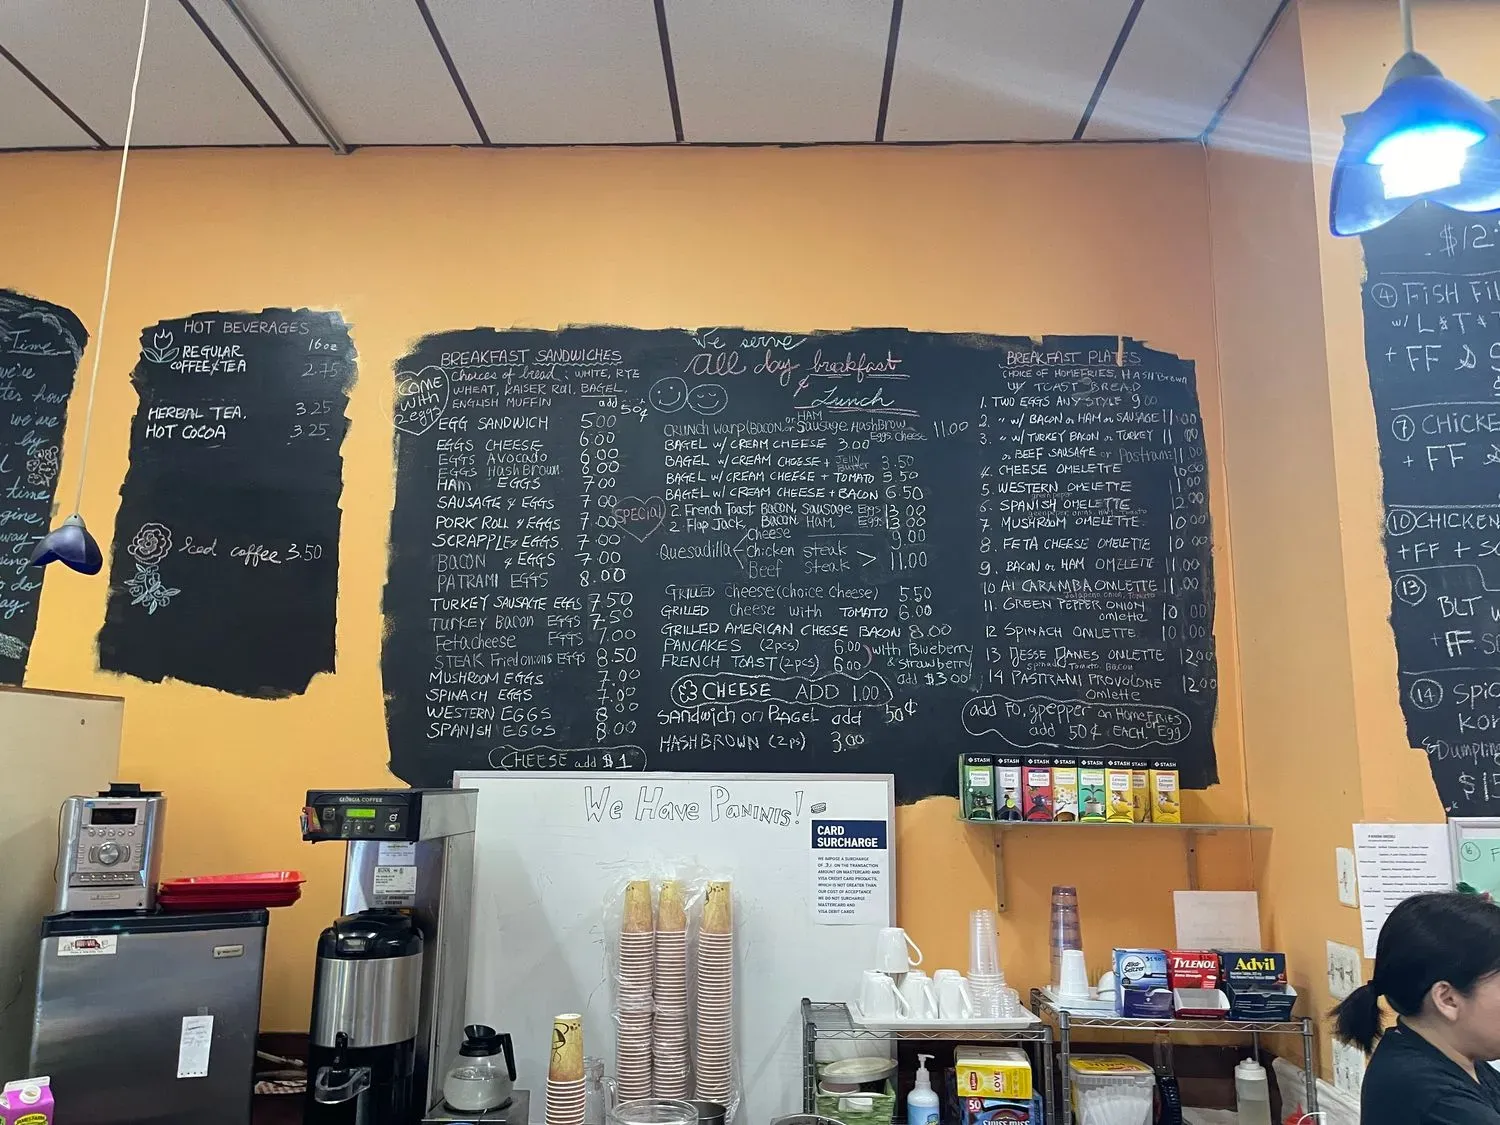 Time
we're
we are
by
time
HOT BEVERAGES
16oz
REGULAR
COFFEE & TEA 2.75
HERBAL TEA. 3.25
HOT COCOA 3.25
Iced coffee 3.50
BREAKFAST SANDWICHES
COME with 2 eggs
Choices of bread: WHITE, RYE
WHEAT, KAISER Roll, BAGEL,
ENGLISH MUFFIN add 50¢
EGG SANDWICH 5.00
EGGS CHEESE 6.00
EGGS Avocado 6.00
EGGS Hash Brown 6.00
HAM EGGS 7.00
SAUSAGE & EGGS 7.00
PORK ROLL & EGGS 7.00
SCRAPPLE & EGGS 7.00
BACON & EGGS 7.00
PATRAMI EGGS 8.00
TURKEY SAUSAGE EGGS 7.50
TURKEY BACON EGGS 7.50
Feta cheese EGGS 7.00
STEAK Fried onions EGGS 8.50
MUSHROOM EGGS 7.00
SPINACH EGGS 7.00
WESTERN EGGS 8.00
SPANISH EGGS 8.00
CHEESE add $1
We serve
All day breakfast
& Lunch
HAM
CRUNCH warp (Bacon or Sausage, Hash Brow 11.00
Eggs, Cheese
BAGEL W/ CREAM CHEESE 3.00
BAGEL W/ CREAM CHEESE + Jelly Butter 3.50
BAGEL W/ CREAM CHEESE + TOMATO 3.50
BAGEL W/ CREAM CHEESE + BACON 6.50
SPECIAL
2 French Toast Bacon, Sausage Eggs 13.00
2 Flap Jack, Bacon Ham, Eggs 13.00
Quesadilla
Cheese 9.00
Chicken steak > 11.00
Beef Steak
GRILLED Cheese (choice Cheese) 5.50
GRILLED Cheese with TOMATO 6.00
GRILLED AMERICAN CHEESE BACON 8.00
PANCAKES (2pcs) 6.00
FRENCH TOAST (2pcs) 6.00
with Blueberry
& Strawberry
add $3.00
CHEESE ADD 1.00
SANDwich on BAGEL add 50¢
HASHBROWN (2ps) 3.00
BREAKFAST PLATES
CHOICE OF HOMEFRIES, HASH Brown
W/ TOAST BREAD
1. TWO EGGS ANY STYLE 9.00
2. " W/ BACON or HAM or SAUSAGE 11.00
3. " W/ TURKEY BACON or TURKEY 11.00
or BEEF SAUSAGE or Pastrami 11.00
4. CHEESE OMELETTE 10.00
5. WESTERN OMELETTE 11.00
6. SPANISH OMELETTE 12.00
7. MUSHROOM OMELETTE 10.00
8. FETA CHEESE OMELETTE 10.00
9. BACON or HAM OMELETTE 11.00
10 AI CARAMBA OMLETTE 11.00
Jalapeno, onion, Tomato
11. GREEN PEPPER ONION
omlette 10.00
12 SPINACH OMLETTE 10.00
13 JESSE JANES OMLETTE 12.00
Spinach Tomato, Bacon
14 PASTRAMI PROVOLONE
Omlette 12.00
add PO, gpepper on HOMEFRIES
add 50¢ EACH or Egg
$12.
④ FISH FIL
W/ L & T &
+ FF &
⑦ CHICKE
+ FF
⑩ CHICKEN
+ FF + S
⑬
BLT W
+ FF.
⑭ SPIC
Kor
Dumplin
$15
WE HAVE PANINIS!
CARD
SURCHARGE
WE IMPOSE A SURCHARGE
OF 3% ON THE TRANSACTION
AMOUNT ON MASTERCARD AND
VISA CREDIT CARD PRODUCTS,
WHICH IS NOT GREATER THAN
OUR COST OF ACCEPTANCE
WE DO NOT SURCHARGE
MASTERCARD AND
VISA DEBIT CARDS
STASH STASH STASH STASH STASH STASH STASH
GEORGIA COFFEE
BUNN
Alka-Seltzer
TYLENOL
Advil
Lipton
LOVE
50
SWISS MISS